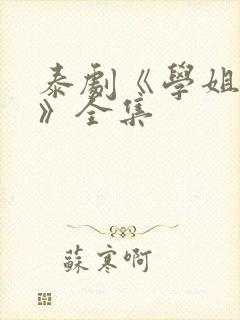 泰劇《學姐
》全集
蘇寒啊